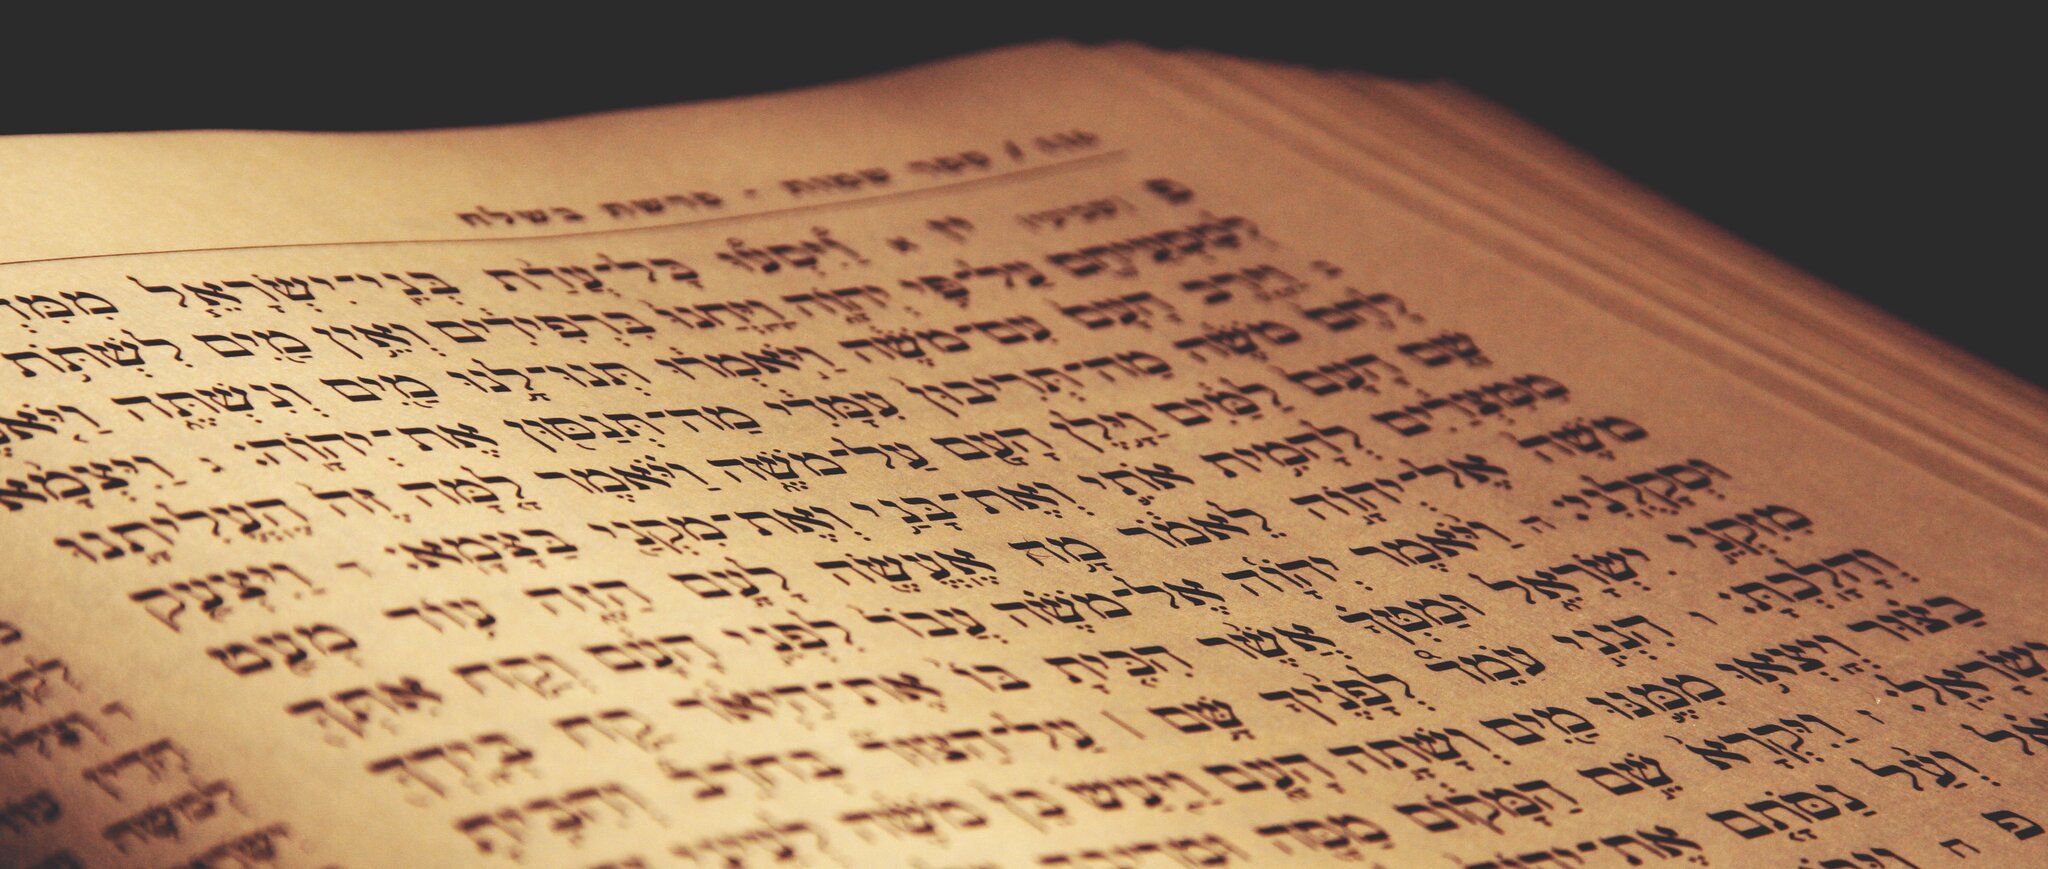 ספר שמות - פרשת בשלח
פ שביעי יז א וַיִּסְע֠וּ כׇּל־עֲדַ֨ת בְּנֵֽי־יִשְׂרָאֵ֧ל
לְמַסְעֵיהֶ֖ם עַל־פִּ֣י יְהֹוָ֑ה וַֽיַּחֲנוּ֙ בִּרְפִידִ֔ים וְאֵ֥ין מַ֖יִם לִשְׁתֹּ֥ת
ב וַיָּ֤רֶב הָעָם֙ עִם־מֹשֶׁ֔ה וַיֹּ֣אמְר֔וּ תְּנוּ־לָ֥נוּ מַ֖יִם וְנִשְׁתֶּ֑ה
לָהֶם֙ מֹשֶׁ֔ה מַה־תְּרִיבוּן֙ עִמָּדִ֔י מַה־תְּנַסּ֖וּן אֶת־יְהֹוָֽה: ג וַיִּצְמָ֨א
שָׁ֤ם הָעָם֙ לַמַּ֔יִם וַיָּ֥לֶן הָעָ֖ם עַל־מֹשֶׁ֑ה וַיֹּ֗אמֶר לָ֤מָּה זֶּה֙ הֶעֱלִיתָ֣נוּ
מִמִּצְרַ֔יִם לְהָמִ֥ית אֹתִ֛י וְאֶת־בָּנַ֥י וְאֶת־מִקְנַ֖י בַּצָּמָֽא: ד וַיִּצְעַ֤ק
מֹשֶׁה֙ אֶל־יְהֹוָ֣ה לֵאמֹ֔ר מָ֥ה אֶעֱשֶׂ֖ה לָעָ֣ם הַזֶּ֑ה ע֥וֹד מְעַ֖ט
וּסְקָלֻֽנִי: ה וַיֹּ֨אמֶר יְהֹוָ֜ה אֶל־מֹשֶׁ֗ה עֲבֹר֙ לִפְנֵ֣י הָעָ֔ם וְקַ֥ח אִתְּךָ֖
מִזִּקְנֵ֣י יִשְׂרָאֵ֑ל וּמַטְּךָ֗ אֲשֶׁ֨ר הִכִּ֤יתָ בּוֹ֙ אֶת־הַיְאֹ֔ר קַ֥ח בְּיָדְךָ֖
וְהָלָֽכְתָּ: ו הִנְנִ֣י עֹמֵד֩ לְפָנֶ֨יךָ שָּׁ֥ם | עַל־הַצּוּר֮ בְּחֹרֵב֒ וְהִכִּ֣יתָ
בַצּ֗וּר וְיָצְא֥וּ מִמֶּ֛נּוּ מַ֖יִם וְשָׁתָ֣ה הָעָ֑ם וַיַּ֤עַשׂ כֵּן֙ מֹשֶׁ֔ה לְעֵינֵ֖י
יִשְׂרָאֵֽל: ז וַיִּקְרָא֙ שֵׁ֣ם הַמָּק֔וֹם מַסָּ֖ה וּמְרִיבָ֑ה
וְעַ֨ל נַסֹּתָ֤ם
פ ח